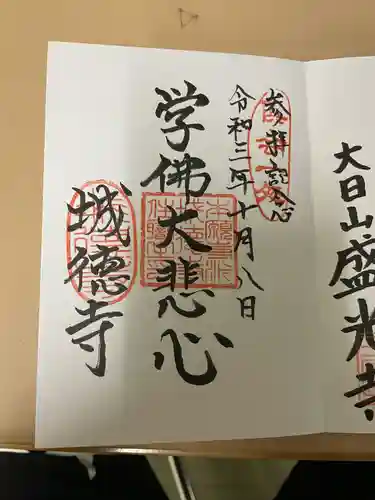 大日山盛光寺
参拝記念
令和三年十月八日
学佛大悲心
城德寺